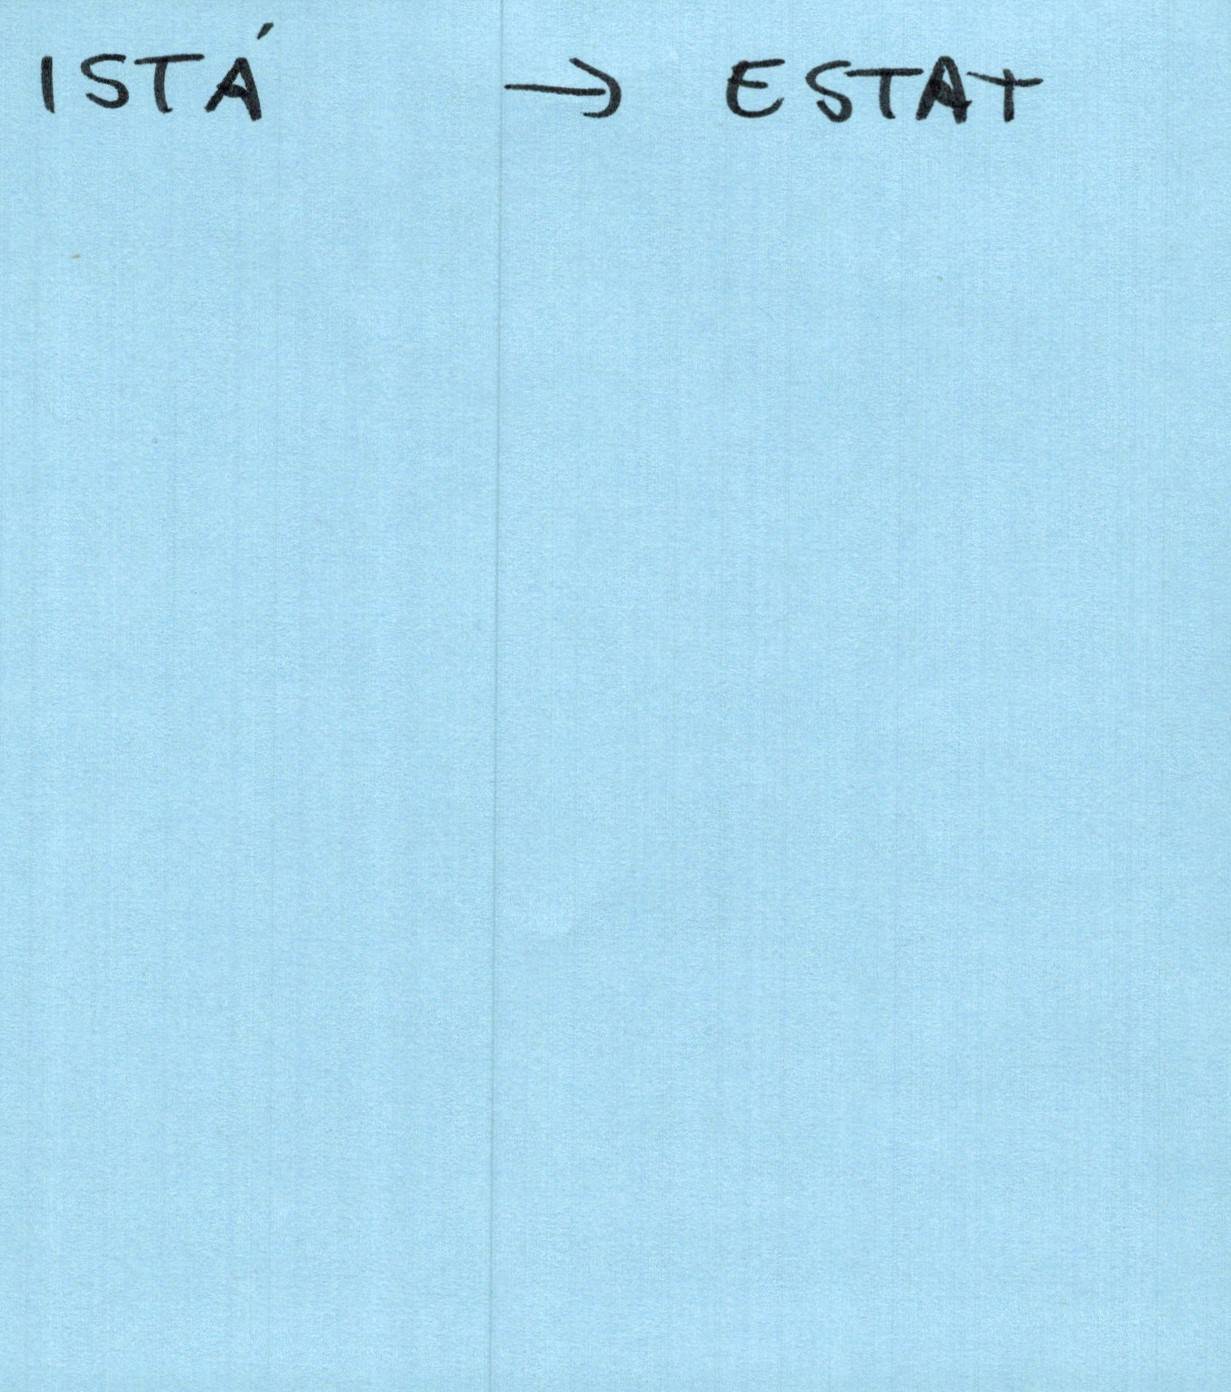 ISTÁ → ESTAT